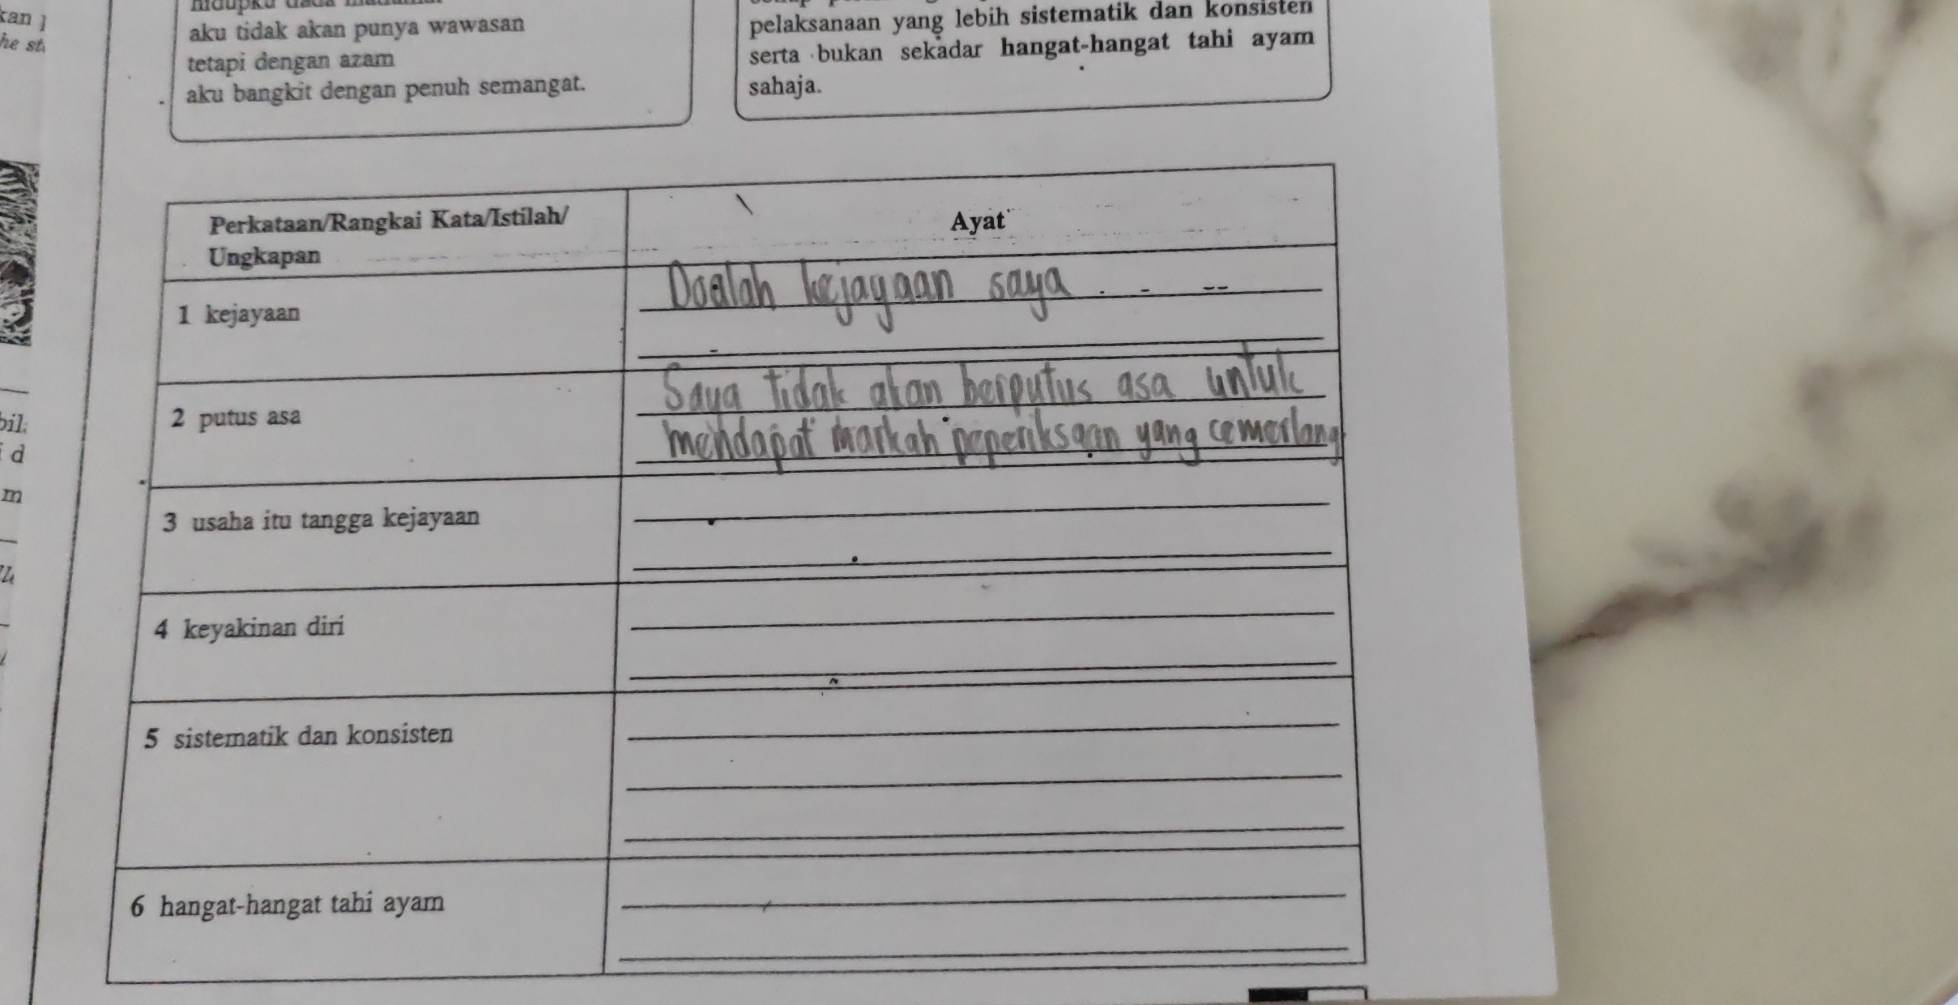 aku tidak akan punya wawasan
tetapi dengan azam
aku bangkit dengan penuh semangat.
pelaksanaan yang lebih sistematik dan konsisten
serta bukan sekadar hangat-hangat tahi ayam
sahaja.
Perkataan/Rangkai Kata/Istilah/
Ungkapan
Ayat
1 kejayaan
Doalah kejayaan saya
2 putus asa
Saya tidak akan berputus asa untuk
mendapat markah peperiksaan yang cemerlang
3 usaha itu tangga kejayaan
4 keyakinan diri
5 sistematik dan konsisten
6 hangat-hangat tahi ayam